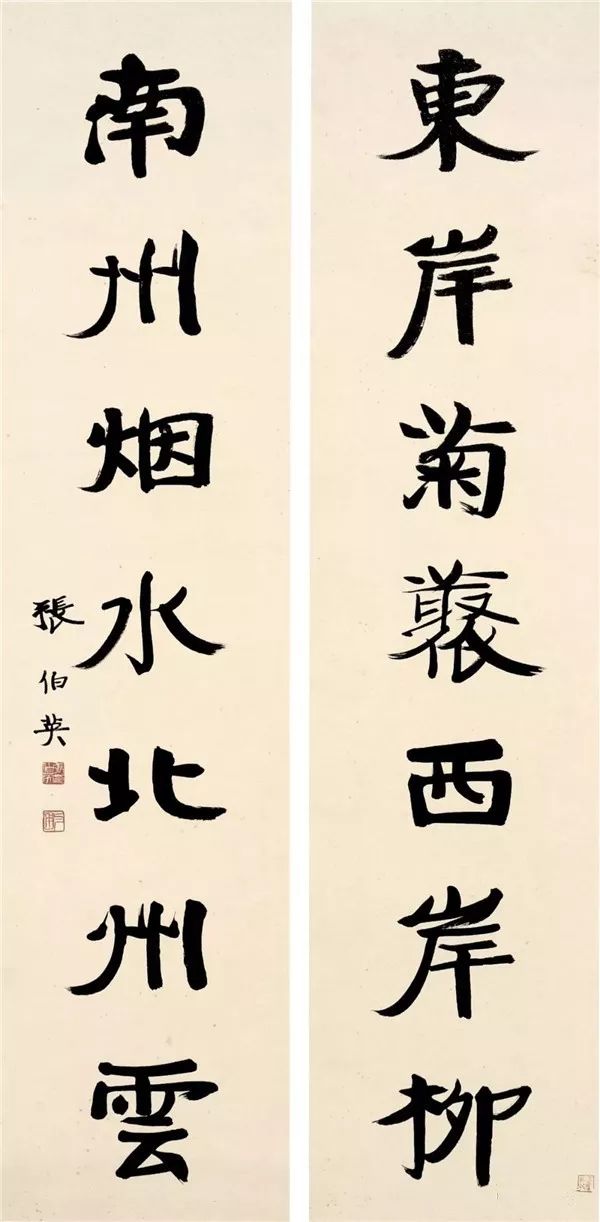 東岸菊叢西岸柳
南州烟水北州雲
張伯英